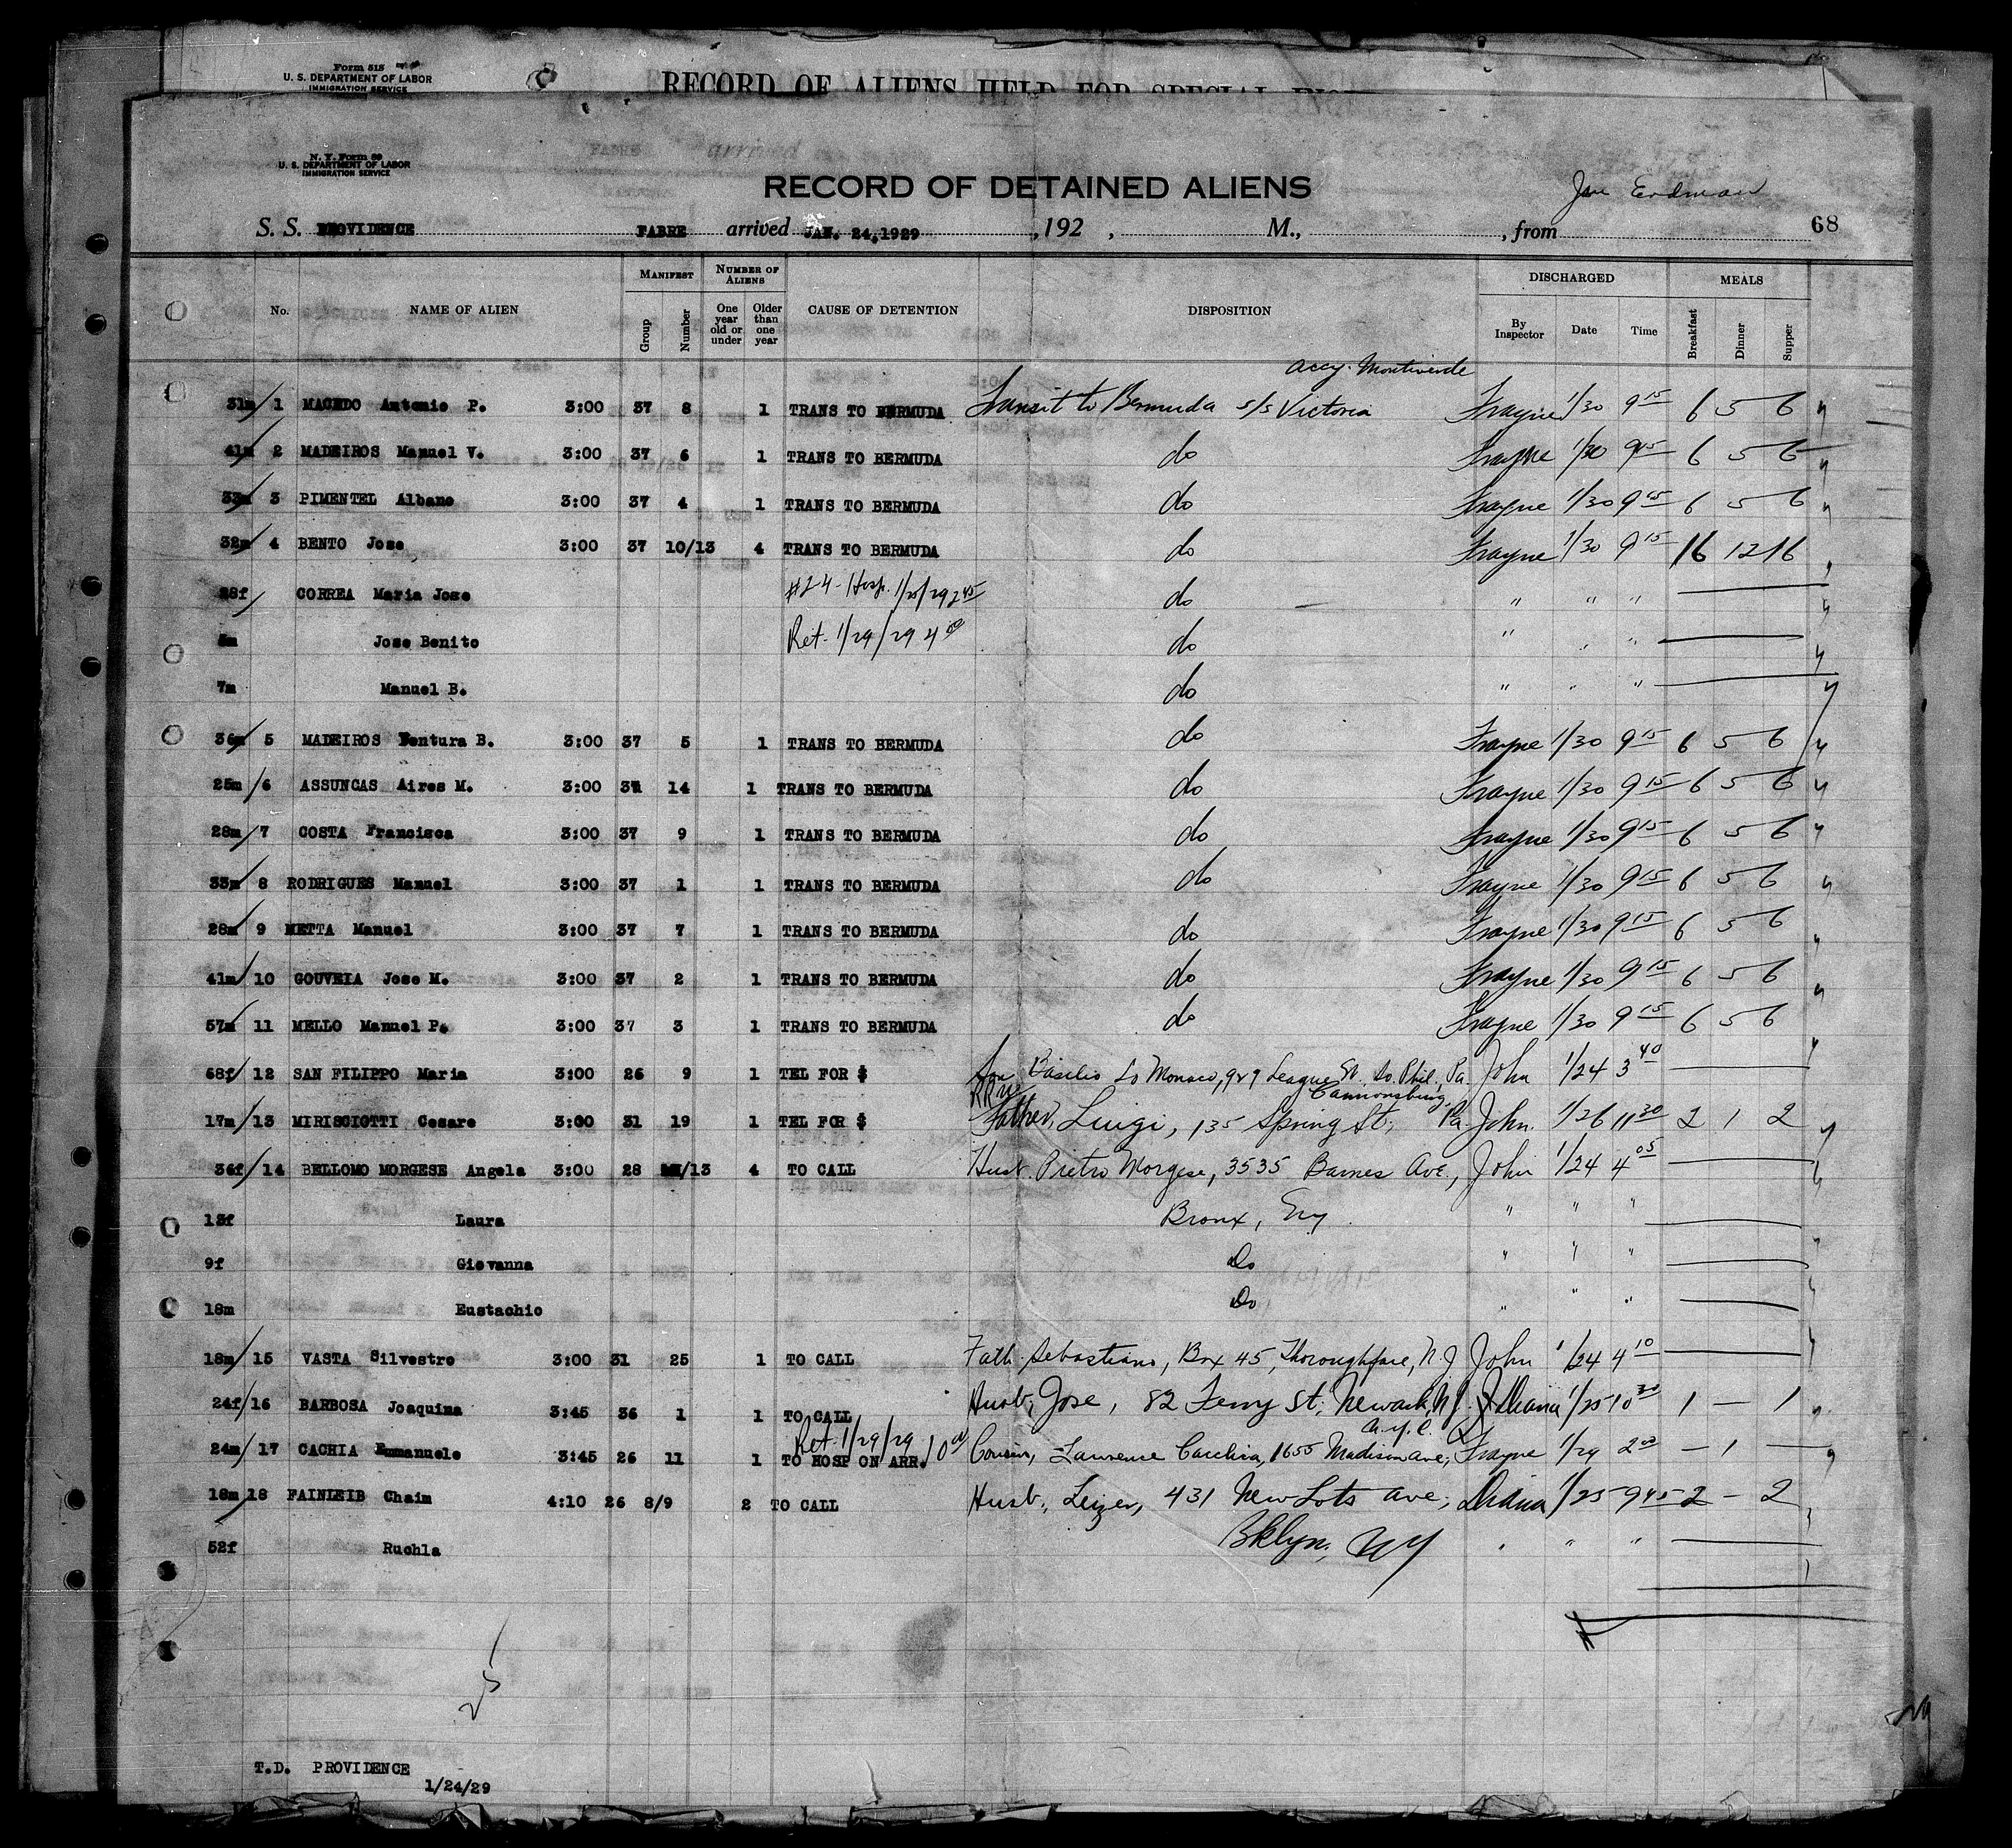 Form 515
U. S. DEPARTMENT OF LABOR
IMMIGRATION SERVICE
RECORD OF ALIENS HELD FOR SPECIAL
N. Y. Form 89
U. S. DEPARTMENT OF LABOR
IMMIGRATION SERVICE
RECORD OF DETAINED ALIENS
Erdman
S. S. PROVIDENCE FABRE arrived JAN. 24,1929 , 192 , M., , from 68
No. NAME OF ALIEN MANIFEST Group Number NUMBER OF ALIENS One year old or under Older than one year CAUSE OF DETENTION DISPOSITION DISCHARGED By Inspector Date Time MEALS Breakfast Dinner Supper
accy. Montiverde
31m 1 MACEDO Antonio P. 3:00 37 8 1 TRANS TO BERMUDA Transit to Bermuda s/s Victoria Frayne 1/30 9 15 6 5 6
41m 2 MADEIROS Manuel V. 3:00 37 6 1 TRANS TO BERMUDA do Frayne 1/30 9 15 6 5 6
33m 3 PIMENTEL Albano 3:00 37 4 1 TRANS TO BERMUDA do Frayne 1/30 9 15 6 5 6
32m 4 BENTO Jose 3:00 37 10/13 4 TRANS TO BERMUDA do Frayne 1/30 9 15 16 12 16
28f CORREA Maria Jose #24-Hosp. 1/25/29 2 45 do " " "
5m Jose Benito Ret. 1/29/29 4 00 do " " "
7m Manuel B. do " " "
36m 5 MADEIROS Ventura B. 3:00 37 5 1 TRANS TO BERMUDA do Frayne 1/30 9 15 6 5 6
25m 6 ASSUNCAS Aires M. 3:00 37 14 1 TRANS TO BERMUDA do Frayne 1/30 9 15 6 5 6
28m 7 COSTA Francisca 3:00 37 9 1 TRANS TO BERMUDA do Frayne 1/30 9 15 6 5 6
33m 8 RODRIGUES Manuel 3:00 37 1 1 TRANS TO BERMUDA do Frayne 1/30 9 15 6 5 6
28m 9 METTA Manuel 3:00 37 7 1 TRANS TO BERMUDA do Frayne 1/30 9 15 6 5 6
41m 10 GOUVEIA Jose M. 3:00 37 2 1 TRANS TO BERMUDA do Frayne 1/30 9 15 6 5 6
57m 11 MELLO Manuel P. 3:00 37 3 1 TRANS TO BERMUDA do Frayne 1/30 9 15 6 5 6
68f 12 SAN FILIPPO Maria 3:00 26 9 1 TEL FOR $ Son Basilio Lo Monaco, 929 League St. So. Phil., Pa. John 1/24 3 40
Cannonsburg,
17m 13 MIRISCIOTTI Cesare 3:00 31 19 1 TEL FOR $ Father, Luigi, 135 Spring St. Pa. John. 1/26 11 30 2 1 2
36f 14 BELLOMO MORGESE Angela 3:00 28 /13 4 TO CALL Husb. Pietro Morgese, 3535 Barnes Ave., John 1/24 4 05
13f Laura Bronx, Ny " " "
9f Giovanna Do " " "
18m Eustachio Do " " "
18m 15 VASTA Silvestro 3:00 31 25 1 TO CALL Fath. Sebastiano, Box 45, Thoroughfare, N.J John 1/24 4 10
24f 16 BARBOSA Joaquina 3:45 36 1 1 TO CALL Husb, Jose, 82 Ferry St; Newark, NJ. 1/25 10 30 1 — 1
Ret. 1/29/29 10 00 n.y.c.
24m 17 CACHIA Emmanuele 3:45 26 11 1 TO HOSP ON ARR. Cousin, Laurence Cacchia, 1655 Madison ave; Frayne 1/29 2 00 — 1 —
18m 18 FAINLEIB Chaim 4:10 26 8/9 2 TO CALL Husb., Leizer, 431 New Lots ave; 1/25 9 45 2 — 2
52f Ruchla Bklyn, NY " " "
25
T.D. PROVIDENCE
1/24/29